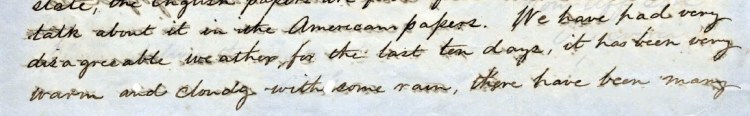 state, the English papers are
talk about it in the American papers. We have had very
disagreeable weather, for the last ten days, it has been very
warm and cloudy with some rain, there have been many